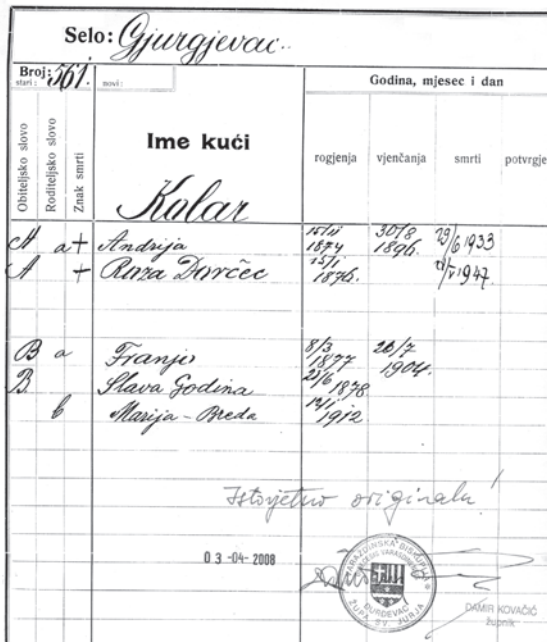 Selo: Gjurgjevac.
Broj: 561.
stari: novi:
Godina, mjesec i dan
Obiteljsko slovo
Roditeljsko slovo
Znak smrti
Ime kući
rogjenja vjenčanja smrti potvrgje
Kolar
A a + Andrija 15/11 1874 30/8 1896. 29/6 1933
A + Roza Dovčec 15/1 1876. 1947.
B a Franjo 8/3 1877 26/7 1904.
B. Slava Godina 21/6 1878.
b Marija - Breda 1912.
Istovjetno originalu!
03-04-2008
VARAŽDINSKA BISKUPIJA
ŽUPA SV. JURJA
ĐURĐEVAC
DAMIR KOVAČIĆ
župnik